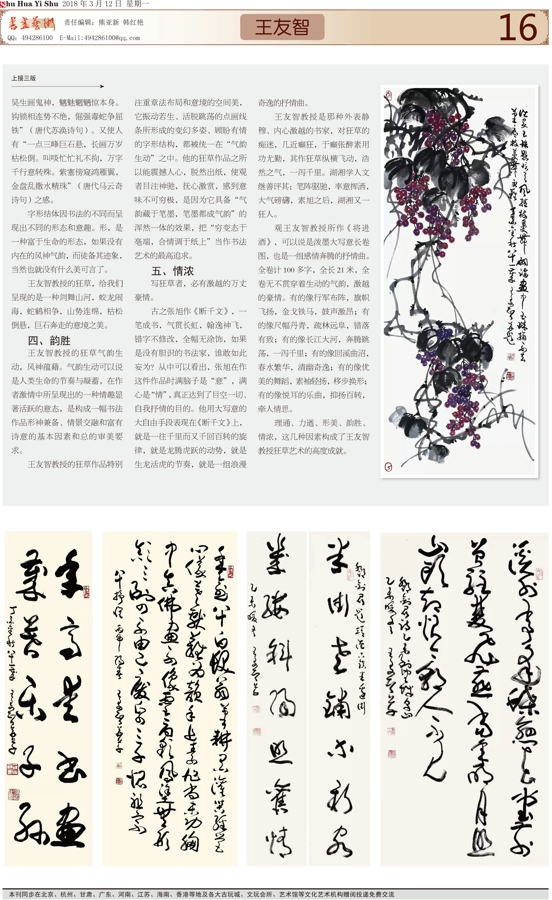 Shu Hua Yi Shu 2018 年 3 月 12 日 星期一
书画艺术
责任编辑：熊亚新 韩红艳
QQ：494286100 E-Mail:494286100@qq.com
王友智
16
上接三版
吴生画鬼神，魑魅魍魉惊本身。
钩锁相连势不绝，倔强毒蛇争屈
铁”（唐代苏涣诗句）。又使人
有“一点三峰巨石悬，长画万岁
枯松倒。叫啖忙忙礼不拘，万字
千行意转殊。紫塞傍窥鸿雁翼，
金盘乱撒水精珠”（唐代马云奇
诗句）之感。
字形结体因书法的不同而呈
现出不同的形态和意趣。形，是
一种富于生命的形态，如果没有
内在的风神气韵，而徒备其迹象，
当然也就没有什么美可言了。
王友智教授的狂草，给我们
呈现的是一种剑舞山河，蛟龙闹
海，蛇鹤相争，山势连绵，枯松
倒悬，巨石奔走的意境之美。
四、韵胜
王友智教授的狂草气韵生
动，风神蕴藉。气韵生动可以说
是人类生命的节奏与蹑蓄，在作
者激情中所呈现出的一种情趣显
著活跃的意态，是构成一幅书法
作品形神兼备，情景交融和富有
诗意的基本因素和总的审美要
求。
王友智教授的狂草作品特别
注重章法布局和意境的空间美，
它振动若生、活脱跳荡的点画线
条所形成的变幻多姿、顾盼有情
的字形结构，都被统一在“气韵
生动”之中。他的狂草作品之所
以能震撼人心，脱然出纸，使观
者目注神驰，抚心激赏，感到意
味不可穷极，是因为它具备“气
韵藏于笔墨，笔墨都成气韵”的
浑然一体的效果，把“穷变态于
毫端，合情调于纸上”当作书法
艺术的最高追求。
五、情浓
写狂草者，必有激越的万丈
豪情。
古之张旭作《断千文》，一
笔成书，气贯长虹，翰逸神飞，
错字不修改，全幅无涂饰，如果
是没有胆识的书法家，谁敢如此
妄为？从中可以看出，张旭在作
这件作品时满脑子是“意”，满
心是“情”，真正达到了目空一切、
自我抒情的目的。他用大写意的
大自由手段表现在《断千文》上，
就是一往千里而又千回百转的旋
律，就是龙腾虎跃的动势，就是
生龙活虎的节奏，就是一组浪漫
奇逸的抒情曲。
王友智教授是那种外表静
穆、内心激越的书家，对狂草的
痴迷，几近癫狂，于癫张醉素用
功尤勤，其作狂草纵横飞动，浩
然之气，一泻千里。湖湘学人文
继善评其：笔阵驱驰，率意挥洒，
大气磅礴，素旭之后，湖湘又一
狂人。
观王友智教授所作《将进
酒》，可以说是泼墨大写意长卷
图，也是一组感情奔腾的抒情曲。
全卷计 100 多字，全长 21 米，全
卷无不贯穿着生动的气韵，激越
的豪情。有的像行军布阵，旗帜
飞扬，金戈铁马，鼓声激昂；有
的像尺幅丹青，疏林远阜，错落
有致；有的像长江大河，奔腾跳
荡，一泻千里；有的像回溪曲沼，
春水繁华，清幽奇逸；有的像优
美的舞蹈，素袖轻扬，移步换形；
有的像悦耳的乐曲，抑扬百转，
牵人情思。
理通、力遒、形美、韵胜、
情浓，这几种因素构成了王友智
教授狂草艺术的高度成就。
年高学书画
岁暮乐子孙
本刊同步在北京、杭州、甘肃、广东、河南、江苏、海南、香港等地及各大古玩城、文玩会所、艺术馆等文化艺术机构赠阅投递免费交流